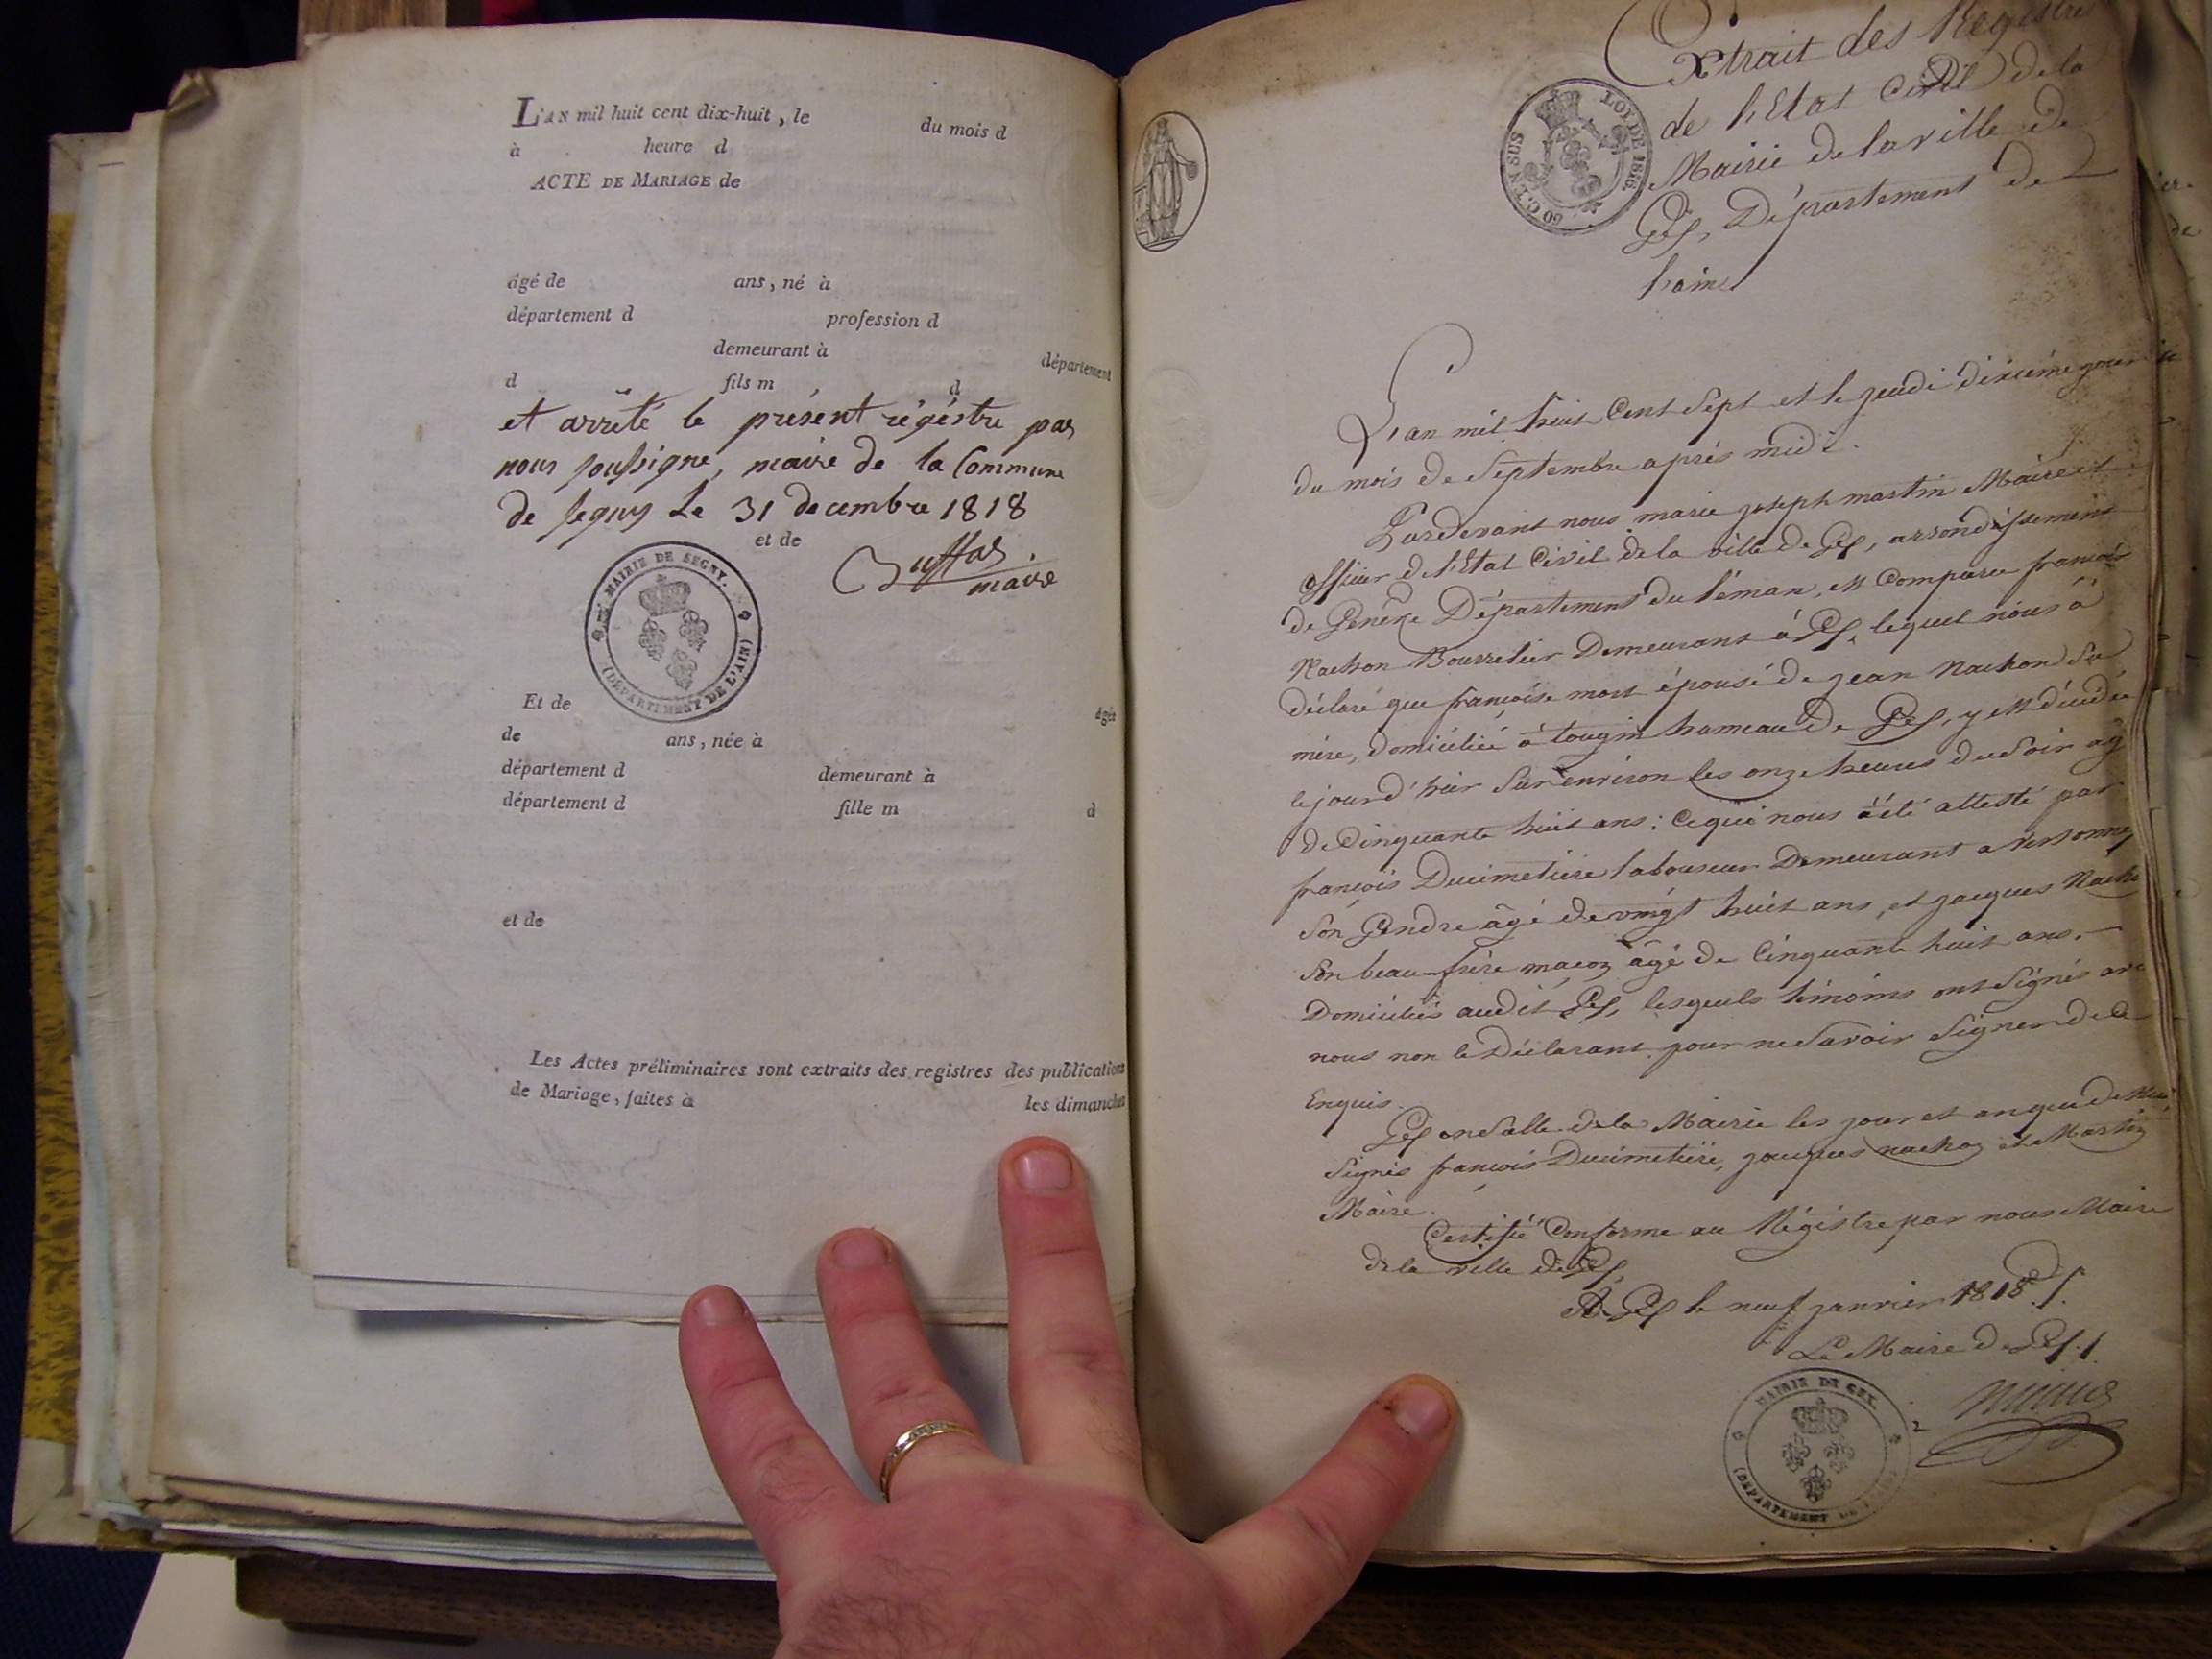 L'AN mil huit cent dix-huit, le du mois d
à heure d
ACTE DE MARIAGE de
âgé de ans, né à
département d profession d
demeurant à département
d fils m d
et arrêté le présent régéstre par
nous soussigné, maire de la Commune
de Segny Le 31 decembre 1818
et de
Buffas
maire
MAIRIE DE SEGNY.
(DÉPARTEMENT DE L'AIN)
Et de âgée
de ans, née à
département d demeurant à
département d fille m d
et de
Les Actes préliminaires sont extraits des registres des publications
de Mariage, faites à les dimanches
Extrait des Registre
de l'Etat Civil de la
Mairie de la ville de
Gex, Département de
l'ain
60 C. EN SUS
LOI DE 1816.
L'an mil huit Cent Sept et le jeudi dixième jour
du mois de Septembre après midi.
Pardevant nous marie joseph martin Maire et
officier de l'Etat Civil de la ville de Gex, arrondissement
de Genève Département du Léman, est Comparu françois
Nachon Bourrelier Demeurant à Gex, lequel nous à
déclaré que françoise mort épouse de jean Nachon Sa
mère, domiciliée à tougin hameau de Gex, y est décédée
le jour d'hier Sur environ les onze heures du Soir âg
de Cinquante huit ans: Ce qui nous à été attesté par
françois Ducimetière laboureur Demeurant a Versonnex
Son Gendre âgé de vingt huit ans, et jacques Nacho
Son beau-frère maçon âgé de Cinquante huit ans,
Domiciliés audit Gex, lesquels témoins ont Signés ave
nous non le Déclarant pour ne Savoir Signer de ce
Enquis.
Gex en Salle de la Mairie les jour et an que dessus
Signés françois Ducimetière, jacques nachon et Martin
Maire.
Certifié Conforme au Régistre par nous Maire
de la ville de Gex,
A Gex le neuf janvier 1818.
Le Maire de Gex.
MAIRIE DE GEX
(DÉPARTEMENT DE L'AIN)